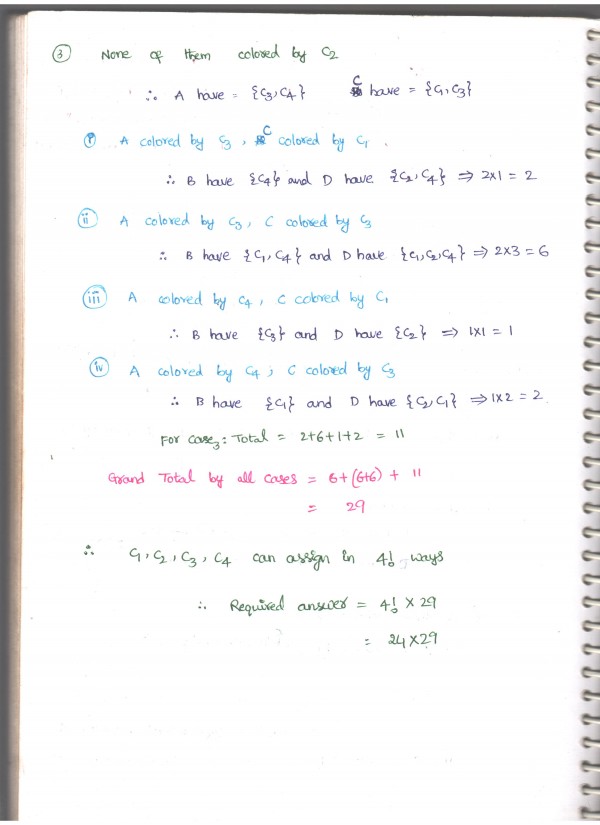 ③ None of them colored by C2
∴ A have = {C3, C4} C have = {C1, C3}
(i) A colored by C3, C colored by C1.
∴ B have {C4} and D have {C2, C4} ⇒ 2×1 = 2
(ii) A colored by C3, C colored by C3
∴ B have {C1, C4} and D have {C1, C2, C4} ⇒ 2×3 = 6
(iii) A colored by C4, C colored by C1
∴ B have {C3} and D have {C2} ⇒ 1×1 = 1
(iv) A colored by C4; C colored by C3
∴ B have {C1} and D have {C2, C1} ⇒ 1×2 = 2
For case3: Total = 2+6+1+2 = 11
Grand Total by all cases = 6+(6+6) + 11
= 29
∴ C1, C2, C3, C4 can assign in 4! ways
∴ Required answer = 4! × 29
= 24×29